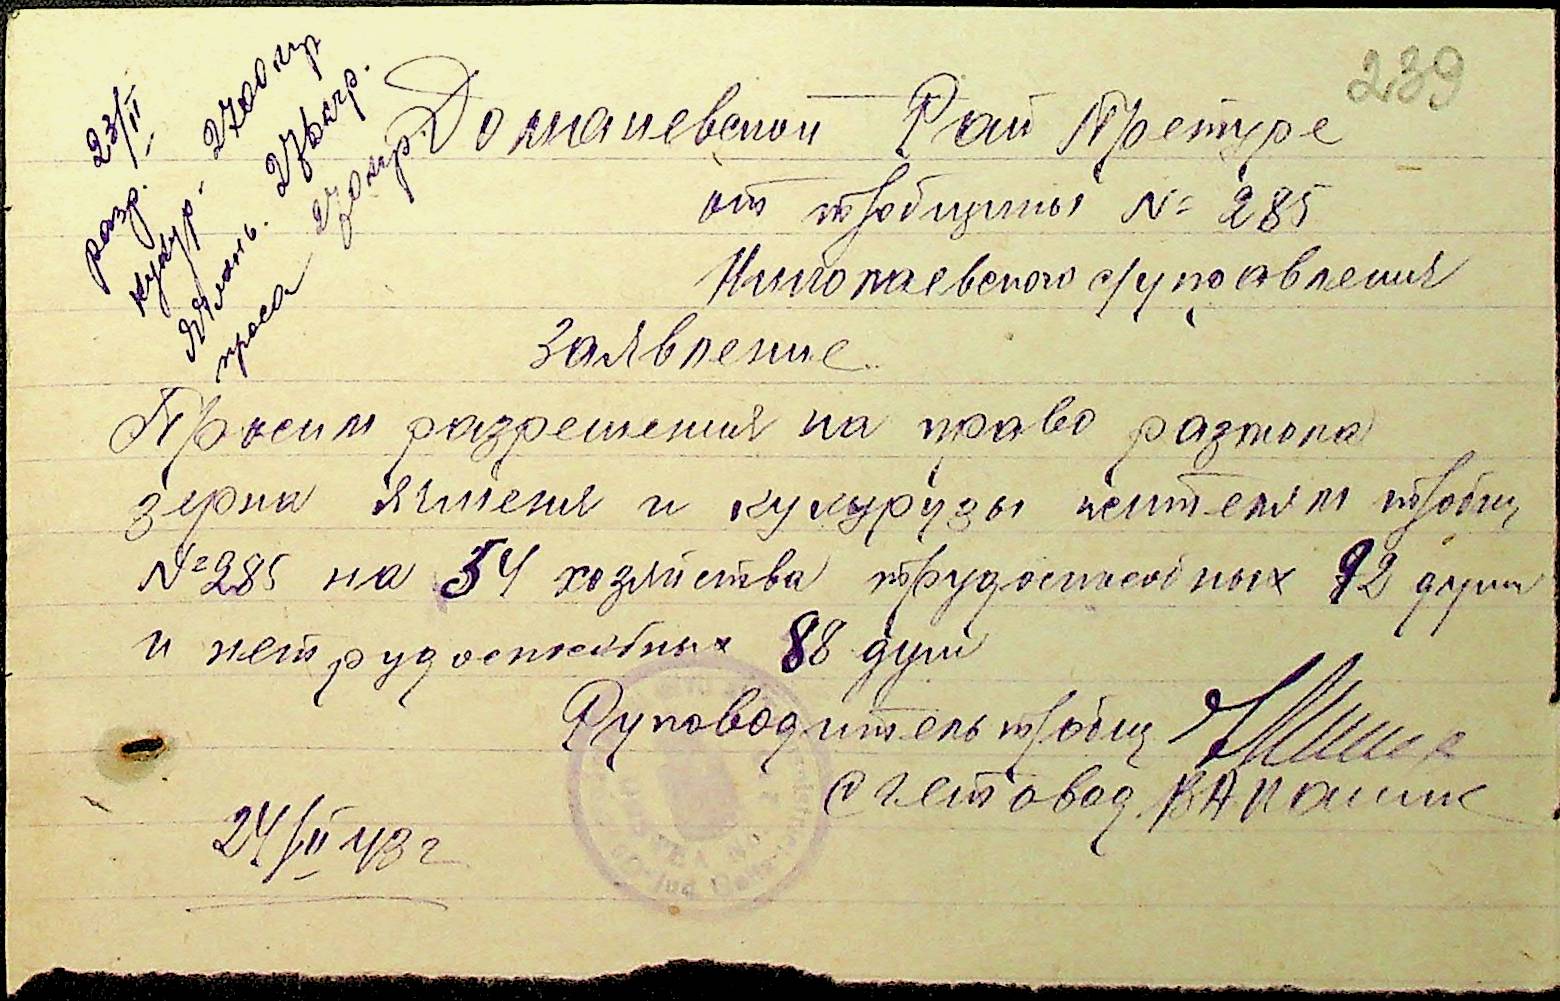 239
23/II
разр.
кукур. 2700 кгр
Ячмень. 276 кгр.
проса 270 кгр.
Доманевской Рай Претуре
от тробщины № 285
Николаевского с/управления
Заявление
Просим разрешения на право размола
зерна ячменя и кукурузы жителям тробщ
№ 285 на 54 хозяйства трудоспособных 92 душ
и нетрудоспособных 88 душ
Руководитель тробщ
Счетовод
24/II 43 г